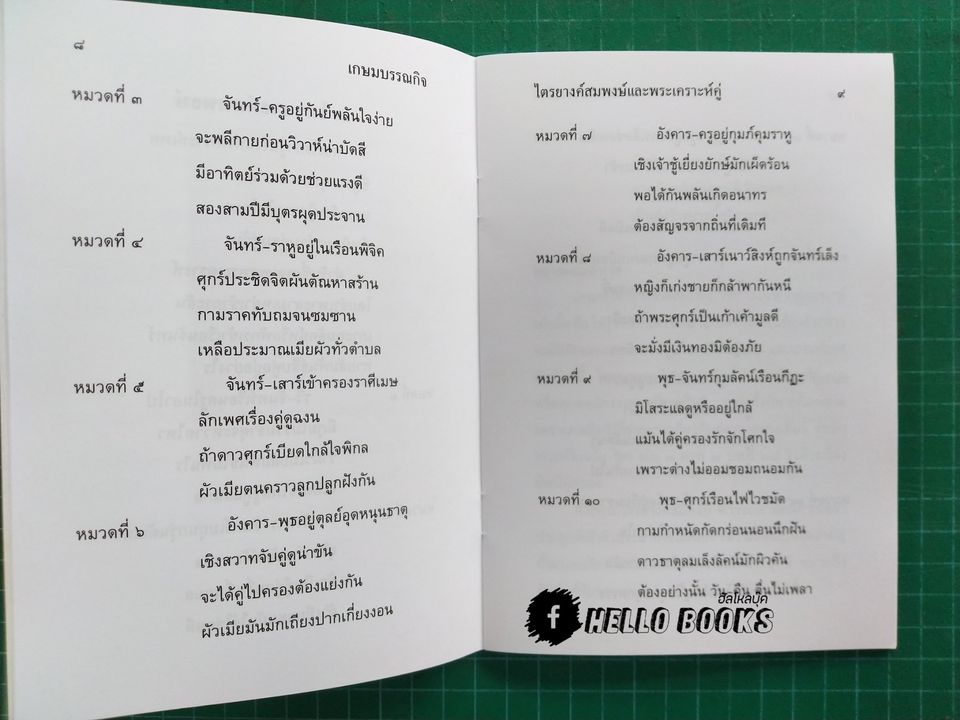 ๘
เกษมบรรณกิจ
หมวดที่ ๓ จันทร์-ครูอยู่กันย์พลันใจง่าย
จะพลีกายก่อนวิวาห์น่าบัดสี
มีอาทิตย์ร่วมด้วยช่วยแรงดี
สองสามปีมีบุตรผุดประจาน
หมวดที่ ๔ จันทร์-ราหูอยู่ในเรือนพิจิค
ศุกร์ประชิดจิตผันตัณหาสร้าน
กามราคทับถมจนซมซาน
เหลือประมาณเมียผัวทั่วตำบล
หมวดที่ ๕ จันทร์-เสาร์เข้าครองราศีเมษ
ลักเพศเรื่องคู่ดูฉงน
ถ้าดาวศุกร์เบียดใกล้ใจพิกล
ผัวเมียตนคราวลูกปลูกฝังกัน
หมวดที่ ๖ อังคาร-พุธอยู่ตุลย์อุดหนุนธาตุ
เชิงสวาทจับคู่ดูน่าขัน
จะได้คู่ไปครองต้องแย่งกัน
ผัวเมียมันมักเถียงปากเกี่ยงงอน
ไตรยางค์สมพงษ์และพระเคราะห์คู่ ๙
หมวดที่ ๗ อังคาร-ครูอยู่กุมภ์คุมราหู
เชิงเจ้าชู้เยี่ยงยักษ์มักเผ็ดร้อน
พอได้กันพลันเกิดอนาทร
ต้องสัญจรจากถิ่นที่เดิมที
หมวดที่ ๘ อังคาร-เสาร์เนาว์สิงห์ถูกจันทร์เล็ง
หญิงก็เก่งชายก็กล้าพากันหนี
ถ้าพระศุกร์เป็นเก้าเค้ามูลดี
จะมั่งมีเงินทองมิต้องภัย
หมวดที่ ๙ พุธ-จันทร์กุมลัคน์เรือนกีฏะ
มิโสระแลดูหรืออยู่ใกล้
แม้นได้คู่ครองรักจักโศกใจ
เพราะต่างไม่ออมชอมถนอมกัน
หมวดที่ ๑๐ พุธ-ศุกร์เรือนไฟไวชมัด
กามกำหนัดกัดกร่อนนอนนึกฝัน
ดาวธาตุลมเล็งลัคน์มักผิวคัน
ต้องอย่างนั้น วัน-คืน ตื่นไม่เพลา
ฮัลโหลบุ๊ค
f HELLO BOOKS